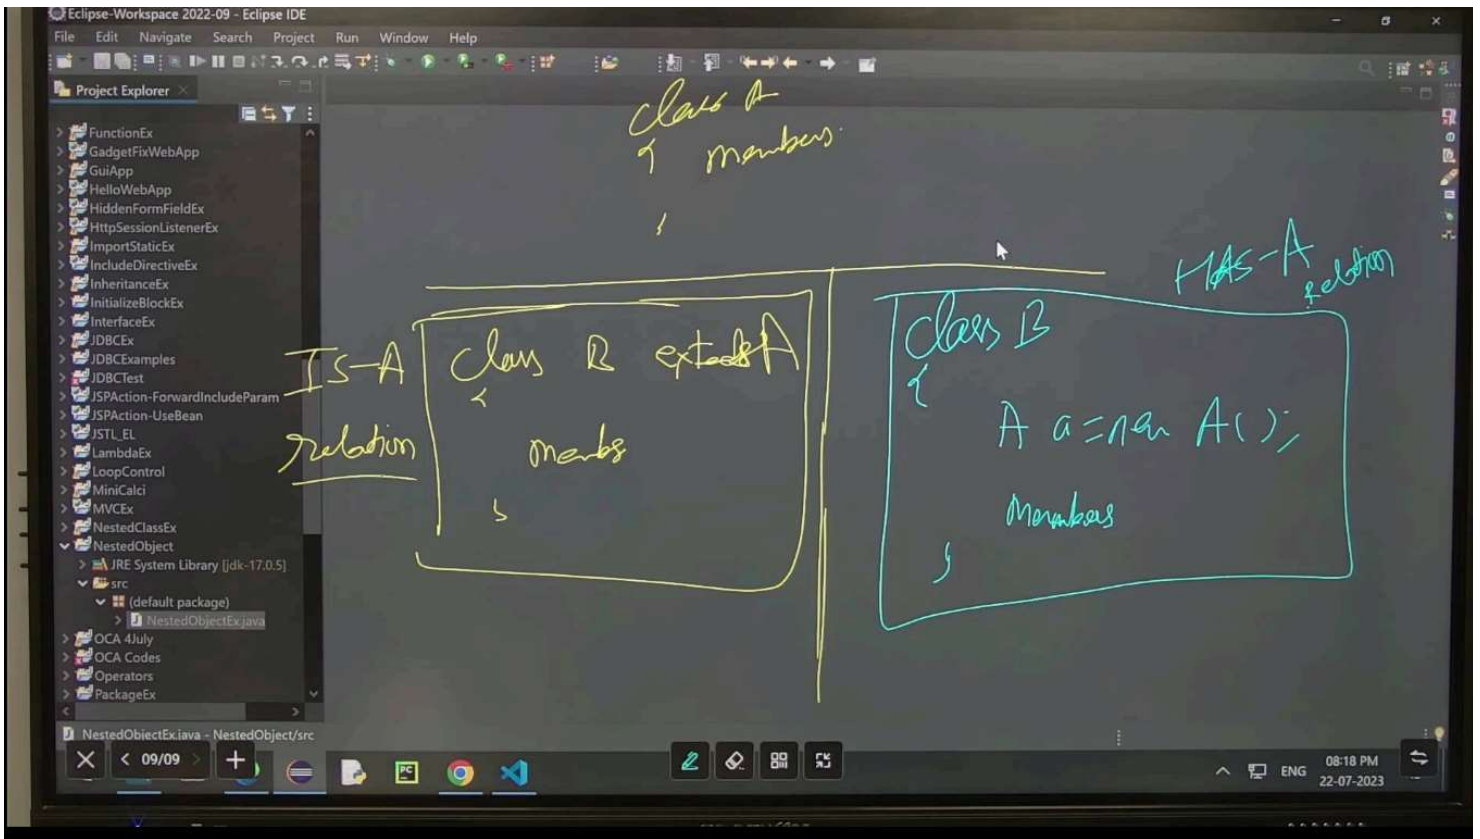 Eclipse-Workspace 2022-09 - Eclipse IDE
File Edit Navigate Search Project Run Window Help
Project Explorer
FunctionEx
GadgetFixWebApp
GuiApp
HelloWebApp
HiddenFormFieldEx
HttpSessionListenerEx
ImportStaticEx
IncludeDirectiveEx
InheritanceEx
InitializeBlockEx
InterfaceEx
JDBCEx
JDBCExamples
JDBCTest
JSPAction-ForwardIncludeParam
JSPAction-UseBean
JSTL_EL
LambdaEx
LoopControl
MiniCalci
MVCEx
NestedClassEx
NestedObject
JRE System Library [jdk-17.0.5]
src
(default package)
NestedObjectEx.java
OCA 4July
OCA Codes
Operators
PackageEx
NestedObjectEx.java - NestedObject/src
class A
{ members
}
IS-A
relation
class B extends A
{
membs
}
HAS-A
relation
class B
{
A a = new A();
members
}
09/09
PC
ENG
08:18 PM
22-07-2023